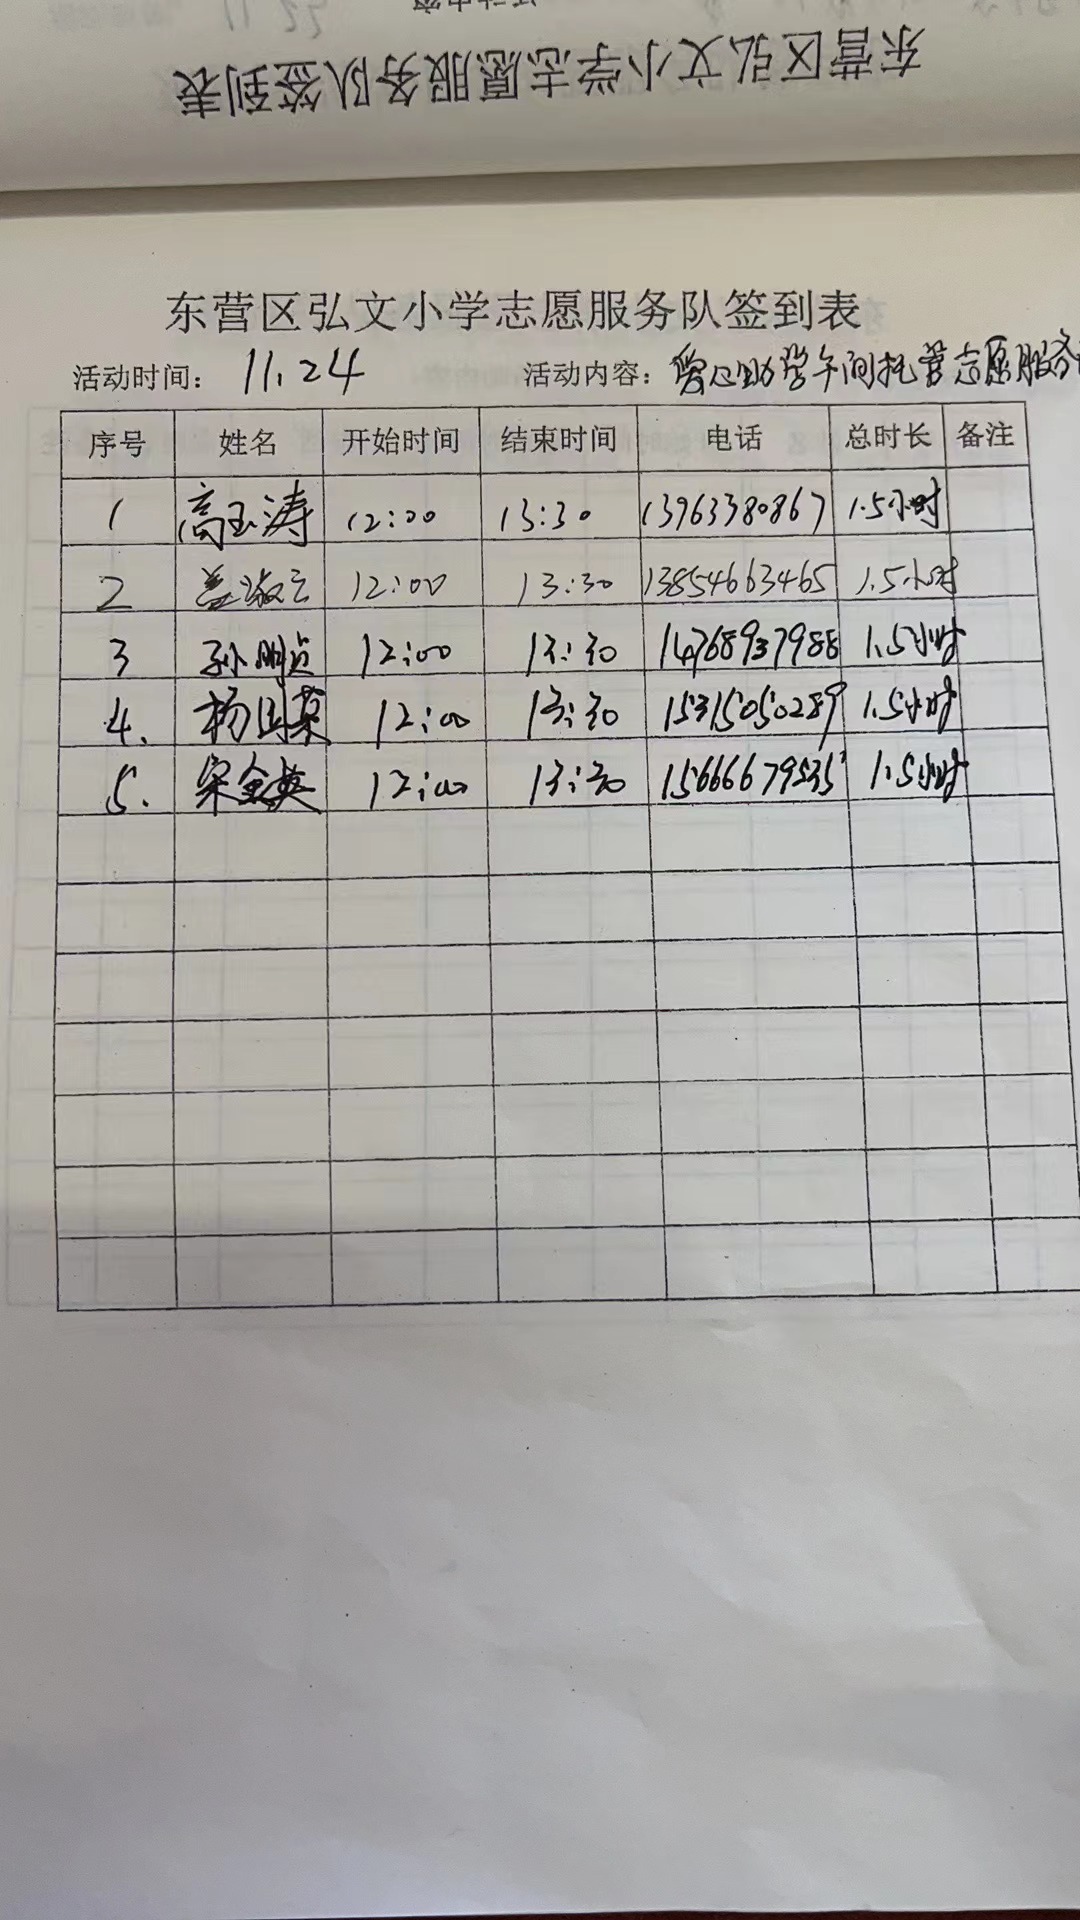 东营区弘文小学志愿服务队签到表
东营区弘文小学志愿服务队签到表
活动时间： 11.24 活动内容：爱心助学午间托管志愿服务
序号 姓名 开始时间 结束时间 电话 总时长 备注
1 高玉涛 12:00 13:30 13963380867 1.5小时
2 盖淑云 12:00 13:30 13854663465 1.5小时
3 孙明贞 12:00 13:30 14768937988 1.5小时
4. 杨国英 12:00 13:30 15315050289 1.5小时
5. 宋金英 12:00 13:30 15666679535 1.5小时